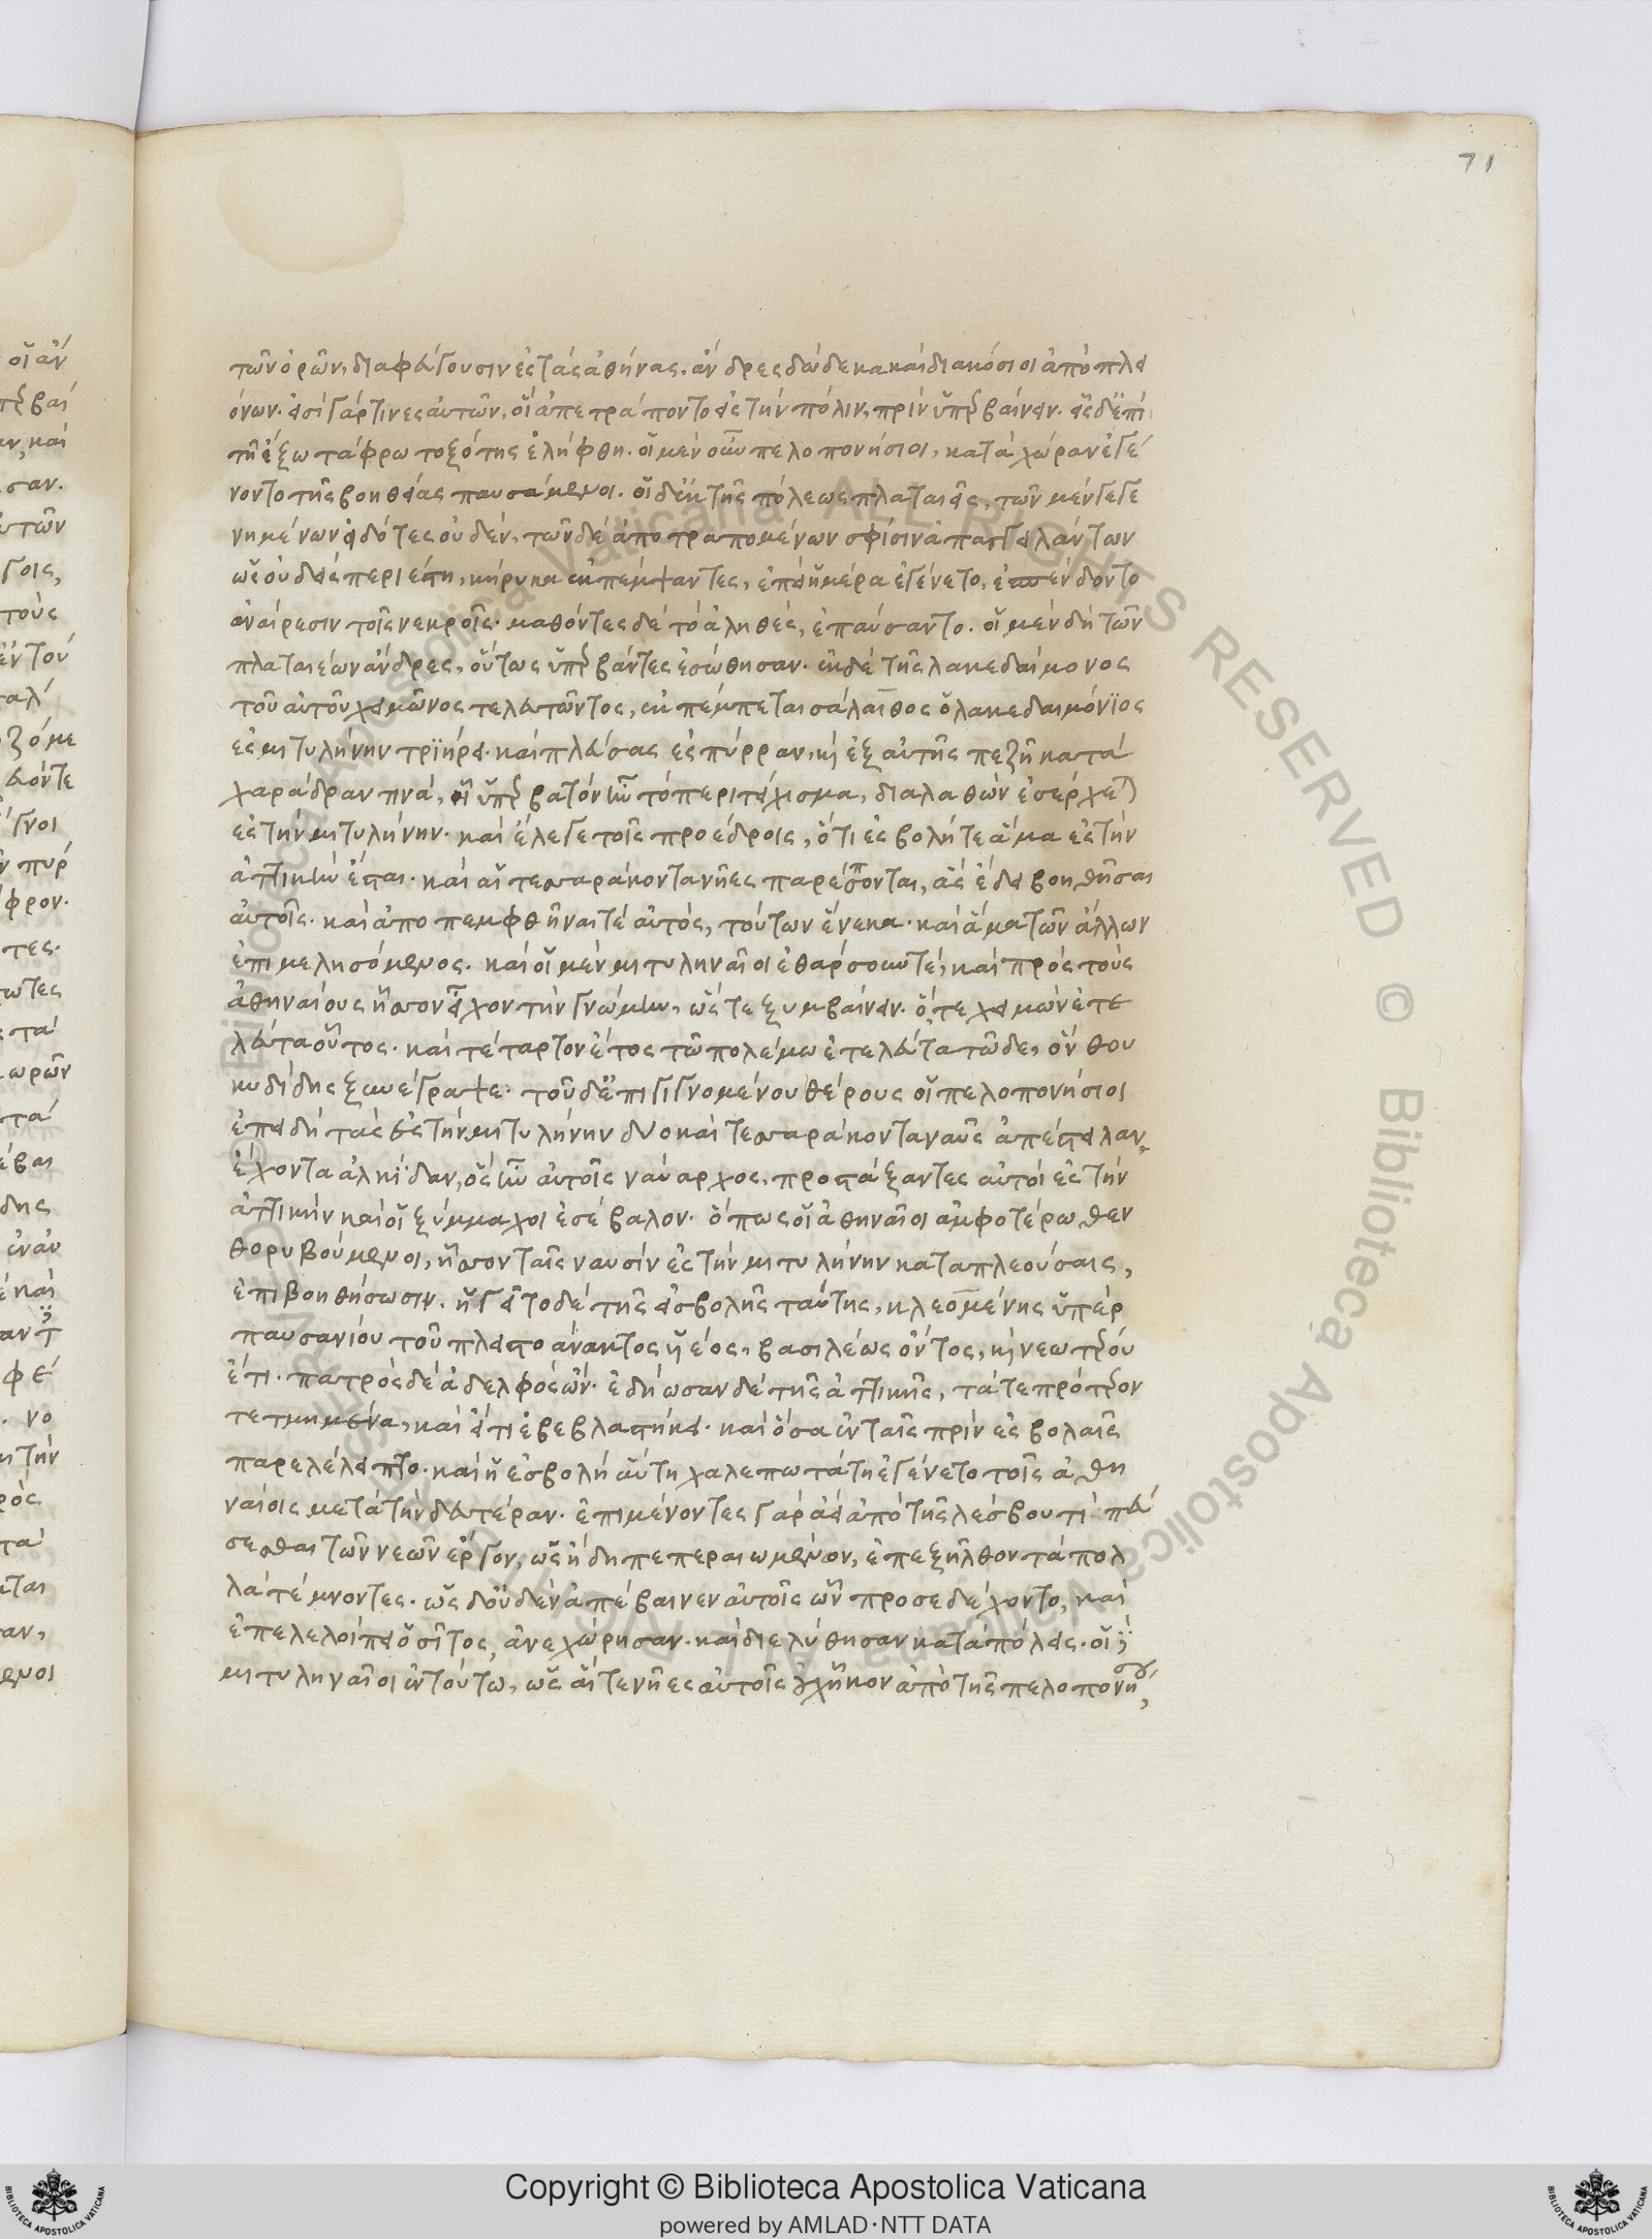 71
τῶν ὀρῶν, διαφεύγουσιν ἐς τὰς ἀθήνας. ἄνδρες δώδεκα καὶ διακόσιοι ἀπὸ πλει
όνων. εἰσὶ γάρ τινες αὐτῶν, οἳ ἀπετράποντο εἰς τὴν πόλιν, πρὶν ὑπερβαίνειν. εἷς δ' ἐπὶ
τῇ ἔξω τάφρω τοξότης ἐλήφθη. οἱ μὲν οὖν πελοπονήσιοι, κατὰ χώραν ἐγέ
νοντο τῆς βοηθείας παυσάμενοι. οἱ δ' ἐκ τῆς πόλεως πλαταιεῖς, τῶν μὲν γεγε
νημένων εἰδότες οὐδέν, τῶν δὲ ἀποτραπομένων σφίσιν ἀπαγγειλάντων
ὡς οὐδεὶς περιέστη, κήρυκα ἐκπέμψαντες, ἐπεὶ ἡμέρα ἐγένετο, ἐσπένδοντο
ἀναίρεσιν τοῖς νεκροῖς. μαθόντες δὲ τὸ ἀληθές, ἐπαύσαντο. οἱ μὲν δὴ τῶν
πλαταιέων ἄνδρες, οὕτως ὑπερβάντες ἐσώθησαν. ἐκ δὲ τῆς λακεδαίμονος
τοῦ αὐτοῦ χειμῶνος τελευτῶντος, ἐκπέμπεται σάλαιθος ὁ λακεδαιμόνϊος
ἐς μιτυλήνην τριήρει. καὶ πλεύσας ἐς πύρραν, κἠ ἐξ αὐτῆς πεζῇ κατὰ
χαράδραν τινά, ᾗ ὑπερβατὸν ἦν τὸ περιτείχισμα, διαλαθὼν ἐσέρχεται
ἐς τὴν μιτυλήνην. καὶ ἔλεγε τοῖς προέδροις, ὅτι ἐσβολή τε ἅμα ἐς τὴν
ἀττικὴν ἔσται. καὶ αἱ τεσσαράκοντα νῆες παρέσονται, ἃς ἔδει βοηθῆσαι
αὐτοῖς. καὶ ἀποπεμφθῆναί τε αὐτός, τούτων ἕνεκα. καὶ ἅμα τῶν ἄλλων
ἐπιμελησόμενος. καὶ οἱ μὲν μιτυληναῖοι ἐθάρσουν τέ, καὶ πρὸς τοὺς
ἀθηναίους ἧσσον εἶχον τὴν γνώμην, ὥστε ξυμβαίνειν. ὅ, τε χειμὼν ἐτε
λεύτα οὗτος. καὶ τέταρτον ἔτος τῶ πολέμω ἐτελεύτα τῶδε, ὃν θου
κυδίδης ξυνέγραψε. τοῦ δ' ἐπιγιγνομένου θέρους οἱ πελοπονήσιοι
ἐπειδὴ τὰς ἐς τὴν μιτυλήνην δύο καὶ τεσσαράκοντα ναῦς ἀπέστειλαν,
ἔχοντα ἀλκίδαν, ὃς ἦν αὐτοῖς ναύαρχος, προστάξαντες αὐτοὶ ἐς τὴν
ἀττικὴν καὶ οἱ ξύμμαχοι ἐσέβαλον. ὅπως οἱ ἀθηναῖοι ἀμφοτέρωθεν
θορυβούμενοι, ἧσσον ταῖς ναυσὶν ἐς τὴν μιτυλήνην καταπλεούσαις,
ἐπιβοηθήσωσιν. ἡγεῖτο δὲ τῆς ἐσβολῆς ταύτης, κλεομένης ὑπὲρ
παυσανίου τοῦ πλειστοάνακτος ὑέος, βασιλέως ὄντος, κἠ νεωτέρου
ἔτι. πατρὸς δὲ ἀδελφὸς ὤν. ἐδήωσαν δὲ τῆς ἀττικῆς, τά τε πρότερον
τετμημένα, καὶ εἴ τι ἐβεβλαστήκει. καὶ ὅσα ἐν ταῖς πρὶν ἐσβολαῖς
παρελέλειπτο. καὶ ἡ ἐσβολὴ αὕτη χαλεπωτάτη ἐγένετο τοῖς ἀθη
ναίοις μετὰ τὴν δευτέραν. ἐπιμένοντες γὰρ ἀεὶ ἀπὸ τῆς λέσβου τὶ πεύ
σεσθαι τῶν νεῶν ἔργον, ὡς ἤδη πεπεραιωμένων, ἐπεξῆλθον τὰ πολ
λὰ τέμνοντες. ὡς δ' οὐδὲν ἀπέβαινεν αὐτοῖς ὧν προσεδέχοντο, καὶ
ἐπελελοίπει ὁ σῖτος, ἀνεχώρησαν. καὶ διελύθησαν κατὰ πόλεις. οἱ δὲ
μιτυληναῖοι ἐν τούτω, ὡς αἵ τε νῆες αὐτοῖς οὐχ ἧκον ἀπὸ τῆς πελοπονήσου,
Copyright © Biblioteca Apostolica Vaticana
powered by AMLAD·NTT DATA